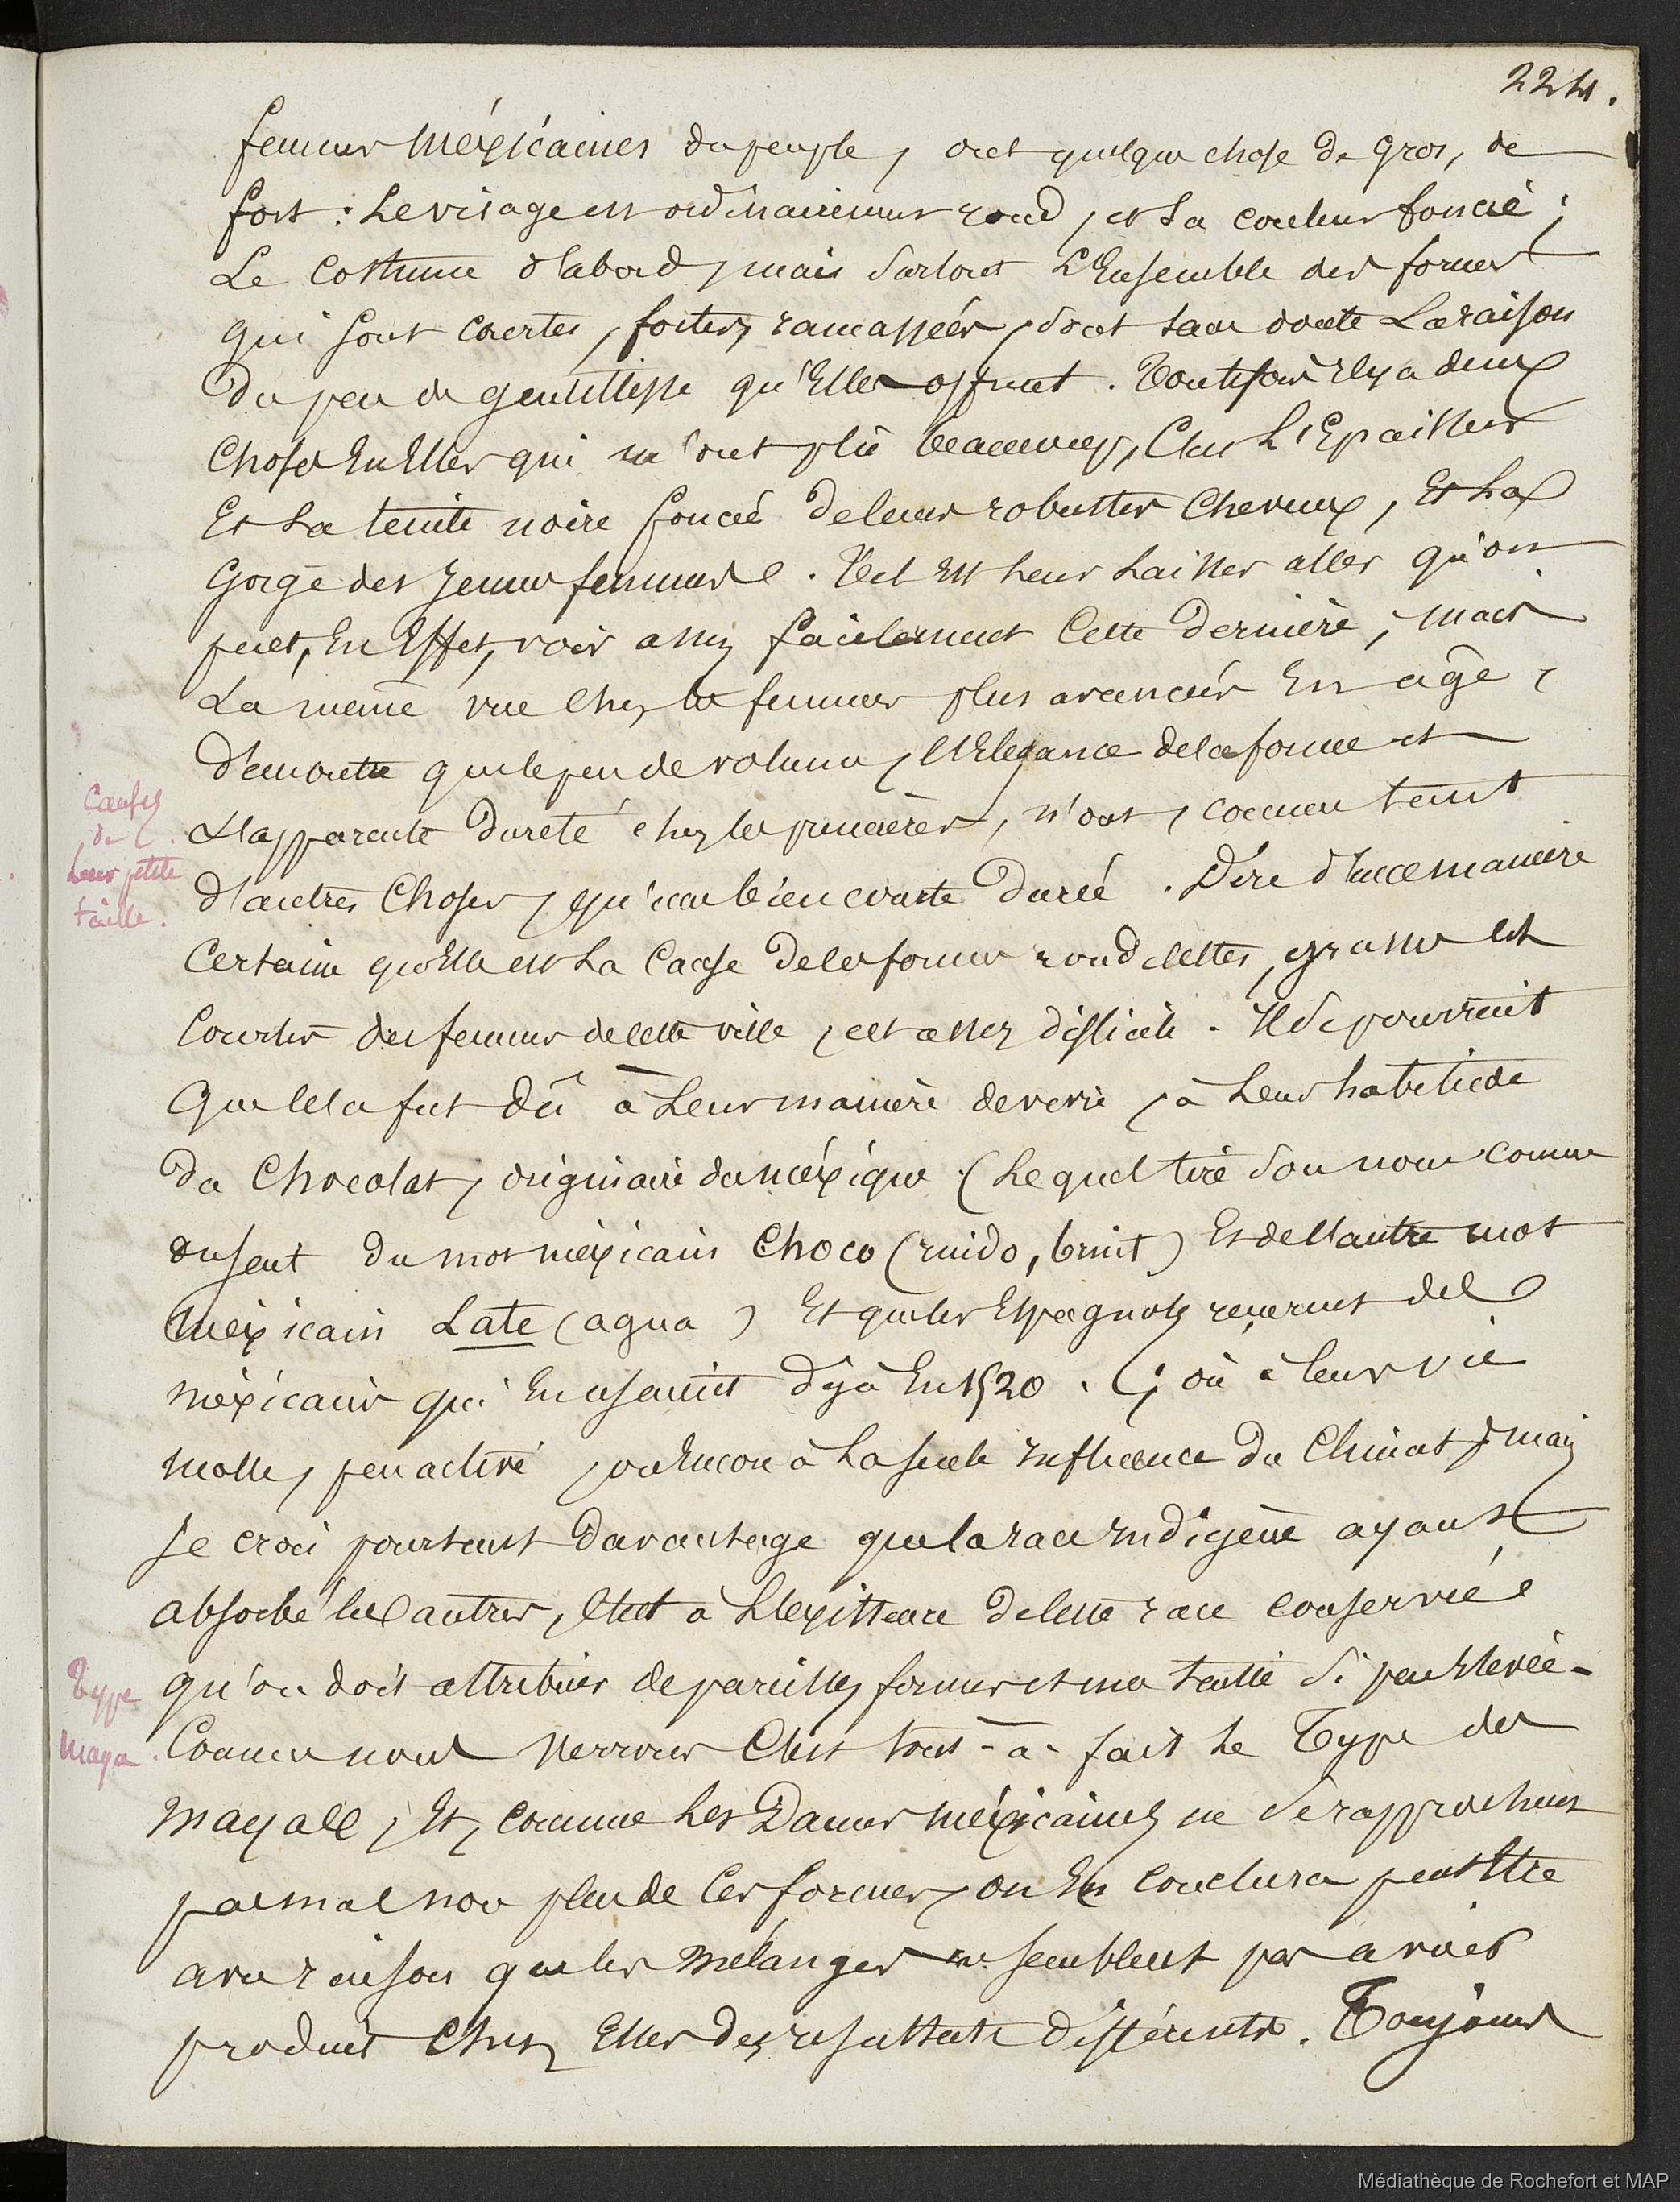 224.
femmes méxicaines du peuple, ont quelque chose de gros, de
fort : Le visage est ordinairement rond, et la couleur foncée ;
Le costume d'abord, mais surtout L'Ensemble des formes
qui sont courtes, fortes, ramassées, sont sans doute La raison
du peu de gentillesse qu'Elles offrent. Toutefois il y a deux
choses En Elles qui m'ont plû beaucoup, C'est L'Epaisseur
Et La teinte noire foncée de leurs robustes cheveux, Et La
Gorge des Jeunes femmes. Tel Est Leur Laisser aller qu'on
peut, En Effet, voir assez facilement Cette dernière, mais
La même vue chez les femmes plus avancées En age,
démontre que le peu de volume, l'Elegance de la forme et
L'apparente dureté chez les premières, n'ont, comme tant
d'autres Choses, qu'une bien courte durée. Dire d'une manière
Certaine quelle est La Cause de les formes rondelettes, grasses et
Courtes des femmes de cette ville, est assez difficile. Il se pourrait
que cela fut dû à Leur manière de vivre, à Leur habitude
du Chocolat, originaire du méxique (Lequel tire son nom comme
on sait du mot méxicain Choco (ruido, bruit) Et de l'autre mot
méxicain Late (agua) Et que les Espagnols reçurent des
méxicains qui En usaient déjà En 1520. ; où à leur vie
molle, peu active, ou Encore à La seule Influence du Climat ; mais
Je crois pourtant davantage que la race Indigène ayant
absorbé les autres, C'est à L'Existence de cette race conservée
qu'on doit attribuer de pareilles formes et une taille si peu Elevée -
Comme nous verrons C'est tout-à-fait Le Type des
mayas, Et, comme Les Dames méxicaines ne se rapprochent
pas mal non plus de Ces formes, on En conclura peut Etre
avec raison que les mélanges ne semblent pas avoir
produit Chez Elles des resultats différents. Toujours
Causes
de
Leur petite
taille.
Type
Maya.
Médiathèque de Rochefort et MAP